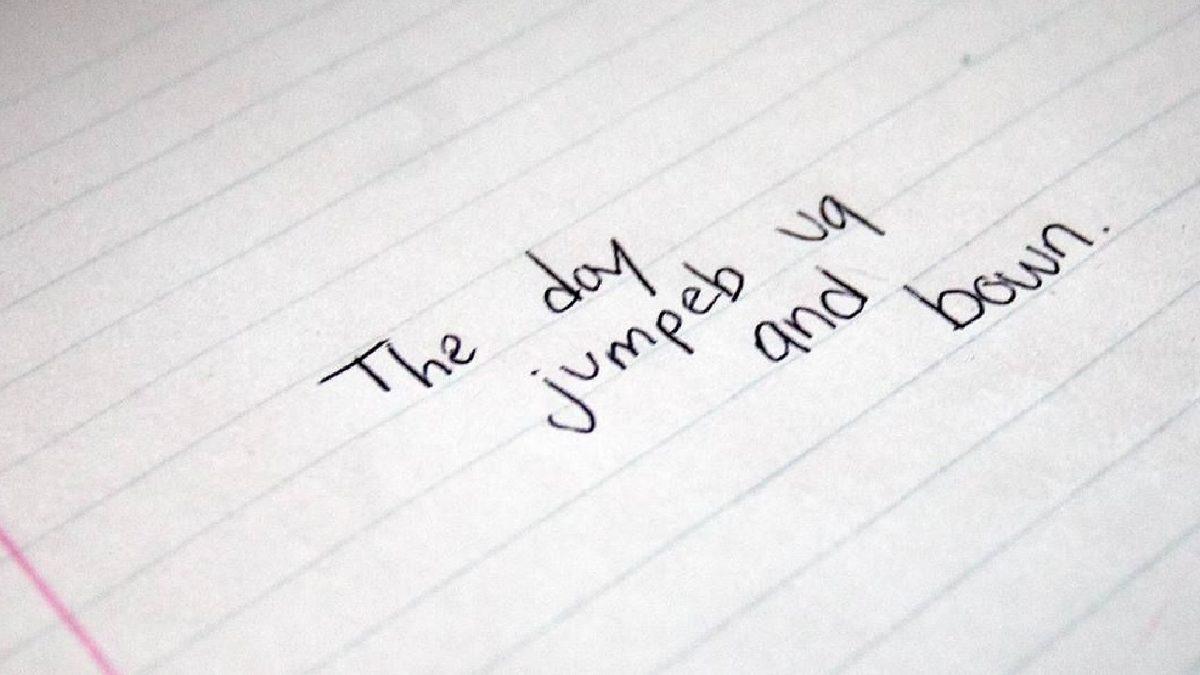 The day jumpeb uq and bown.